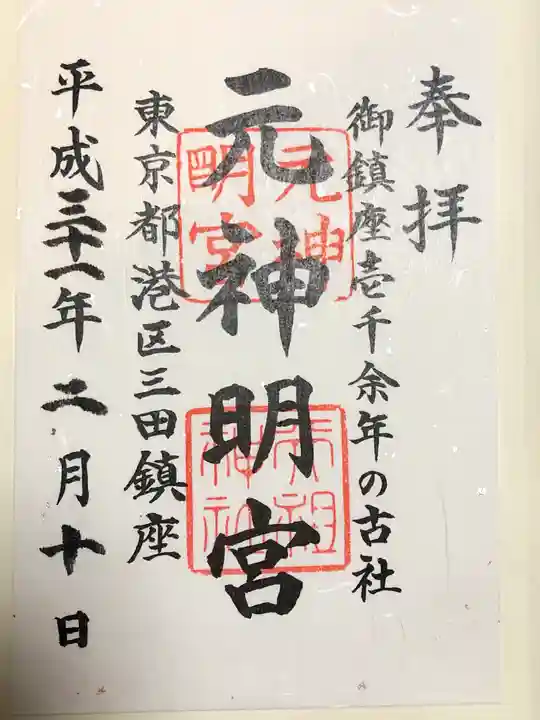 奉拝
御鎮座壱千余年の古社
元神明宮
元神明宮
天祖神社
東京都港区三田鎮座
平成三十一年二月十日